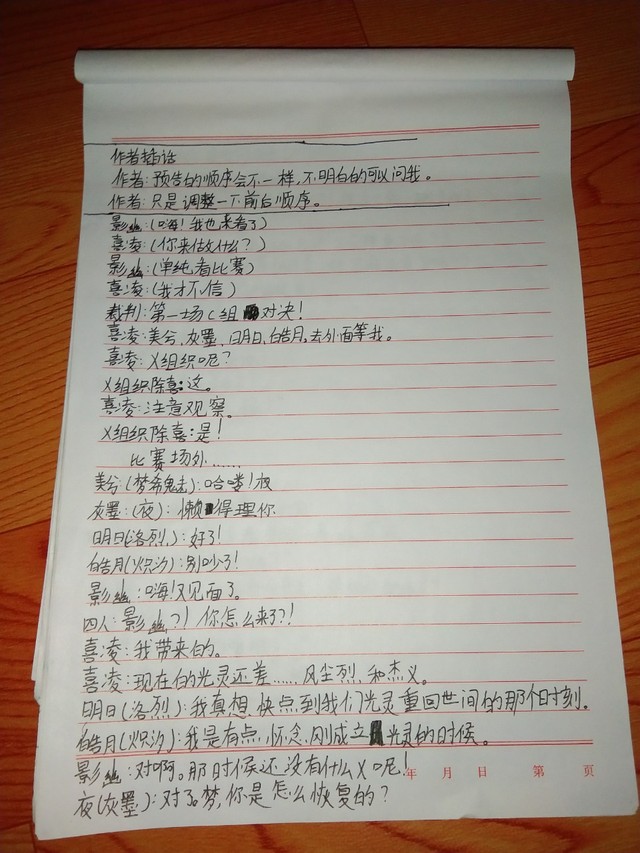 作者插话
作者:预告的顺序会不一样,不明白的可以问我。
作者:只是调整一下前后顺序。
影幽:(嗨!我也来看了)
喜凌:(你来做什么?)
影幽:(单纯看比赛)
喜凌:(我才不信)
裁判:第一场C组对决!
喜凌:美兮,灰墨,明日,皓月,去外面等我。
喜凌:X组织呢?
X组织除喜:这。
喜凌:注意观察。
X组织除喜:是!
比赛场外……
美兮(梦希魅):哈喽!叔
灰墨:(夜):懒得理你
明日(洛烈):好了!
皓月(炽汐):别吵了!
影幽:嗨!又见面了。
四人:影幽?!你怎么来了?!
喜凌:我带来的。
喜凌:现在的光灵还差……风尘烈,和杰义。
明日(洛烈):我真想,快点,到我们光灵重回世间的那个时刻.
皓月(炽汐):我是有点,怀念,刚成立光灵的时候。
影幽:对啊。那时候还没有什么X呢!
年 月 日 第 页
夜(灰墨):对了。梦,你是怎么恢复的?